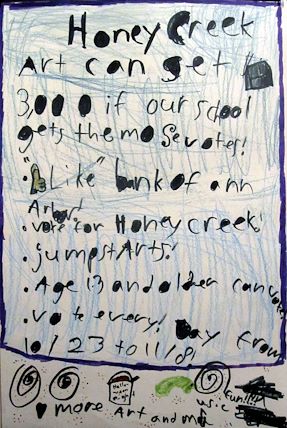 Honey Creek
Art can get
3,000 if our school
gets the mo Se votes!
"Like" bank of ann
Arbor!
• vote for Honey creek!
• jumpstArts!
• Age 13 and older can vote
• vote every! Day from
10/23 to 11/8!
fun!!!!
more Art and music